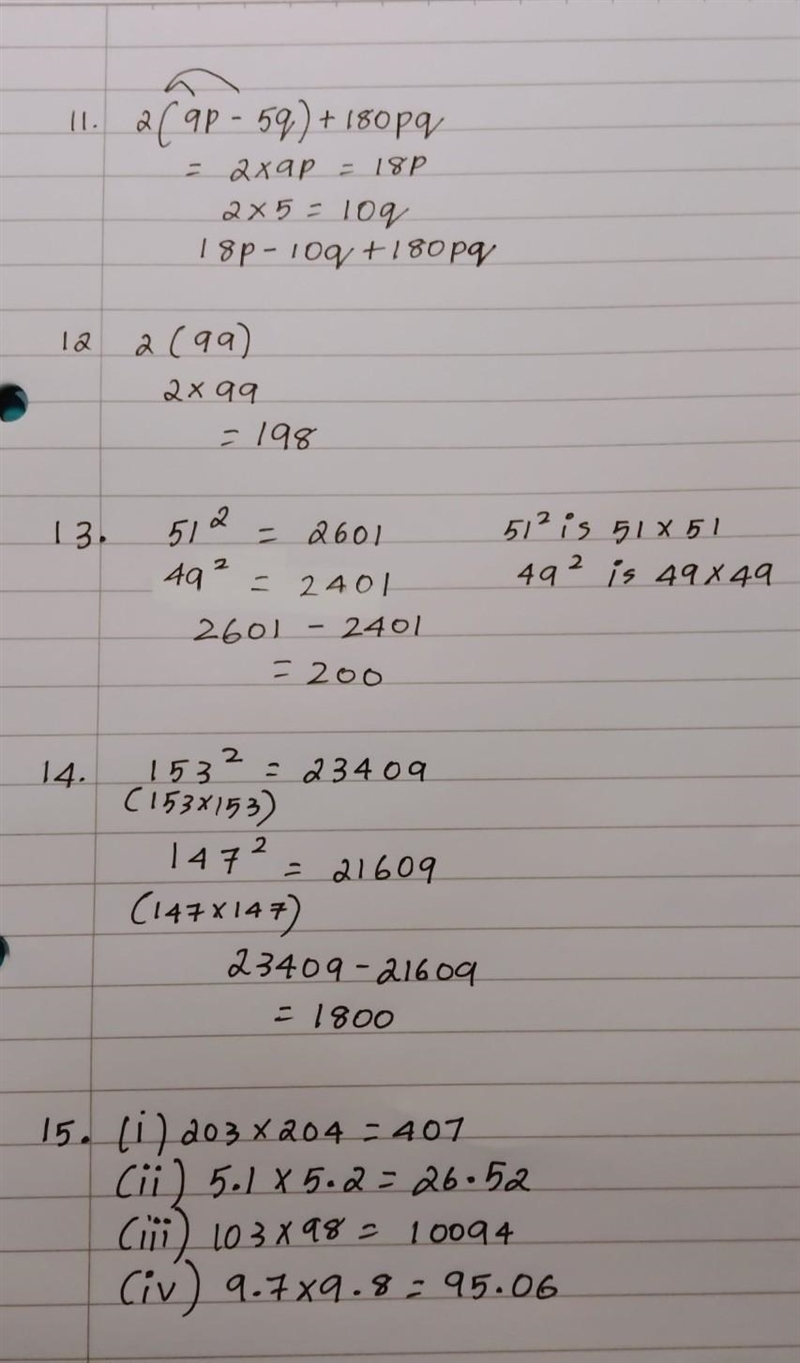 11. 2(9p - 5q) + 180pq
= 2×9p = 18p
2×5 = 10q
18p - 10q + 180pq
12 2(99)
2×99
= 198
13. 51² = 2601 51² is 51 × 51
49² = 2401 49² is 49×49
2601 - 2401
= 200
14. 153² = 23409
(153×153)
147² = 21609
(147×147)
23409 - 21609
= 1800
15. (i) 203×204 = 407
(ii) 5.1 × 5.2 = 26.52
(iii) 103×98 = 10094
(iv) 9.7×9.8 = 95.06